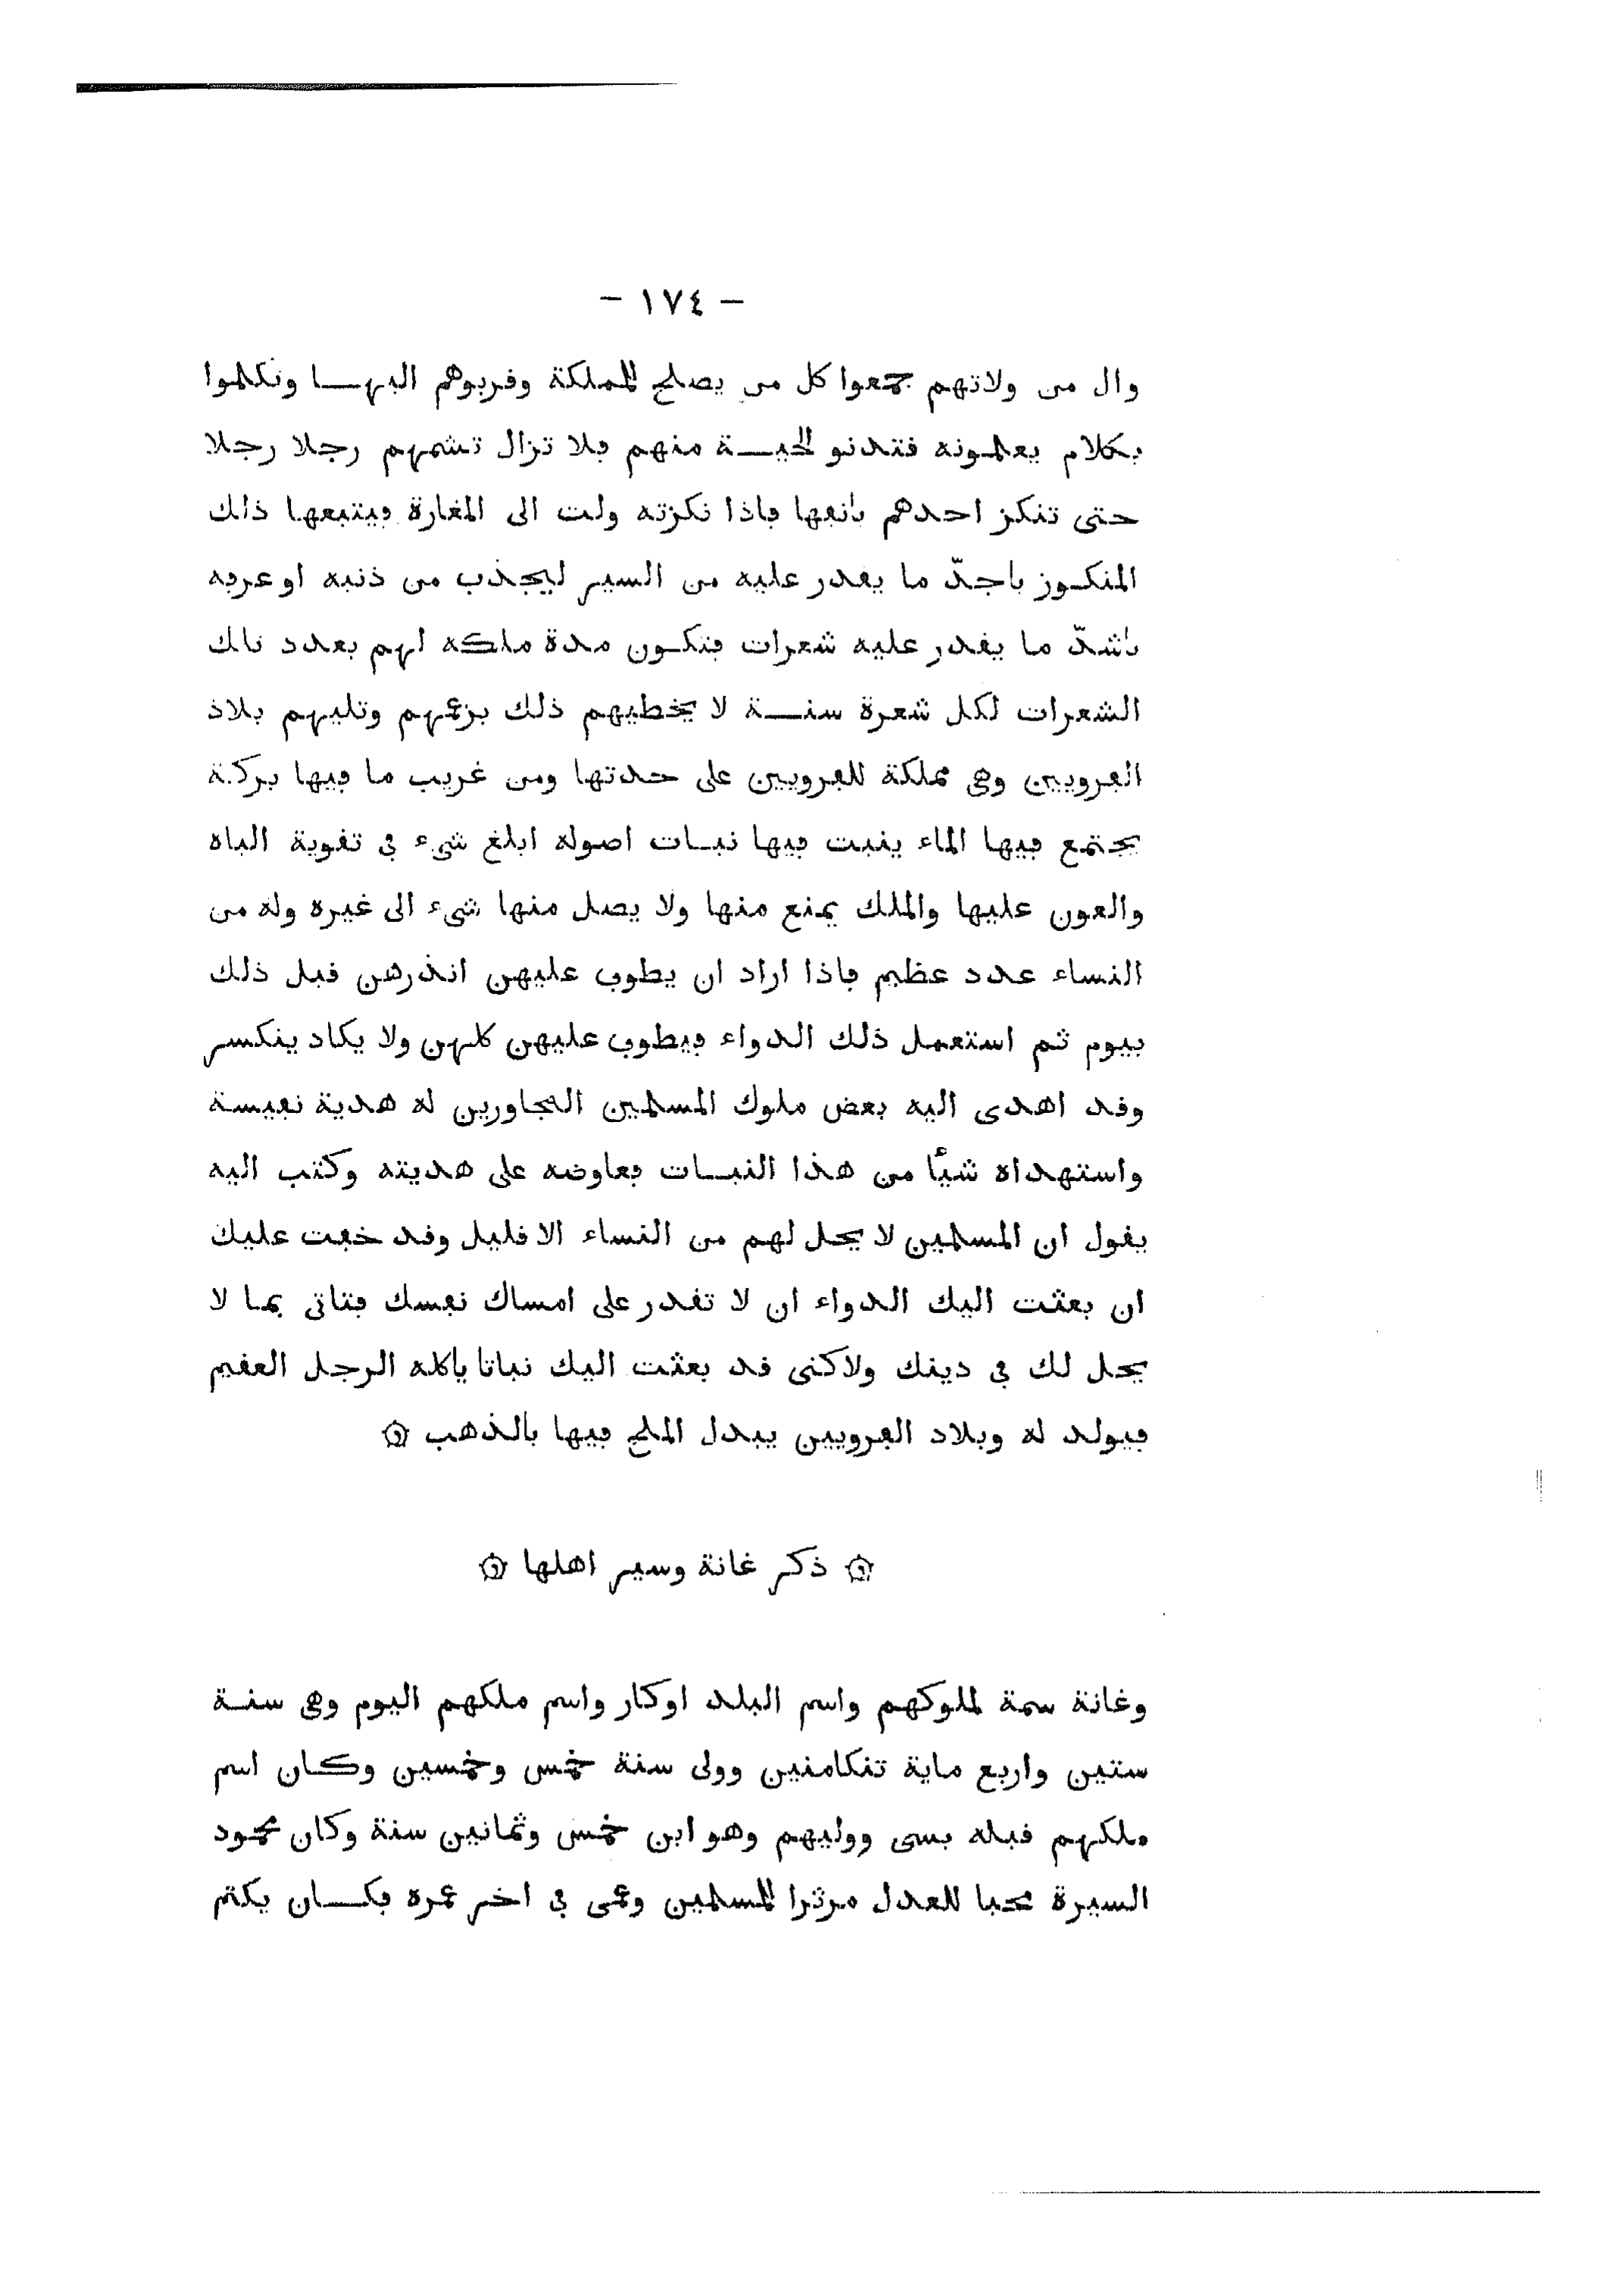 – ١٧٤ –
وال من ولاتهم جمعوا كل من يصلح للمملكة وقربوهم اليها وتكلموا
بكلام يعلمونه فتدنو الحية منهم فلا تزال تشمهم رجلا رجلا
حتى تنكز احدهم بأنفها فاذا نكزته ولت الى المغارة فيتبعها ذلك
المنكوز باجدّ ما يقدر عليه من السير ليجذب من ذنبه او عرفه
باشدّ ما يقدر عليه شعرات فتكون مدة ملكه لهم بعدد تلك
الشعرات لكل شعرة سنة لا يخطيهم ذلك بزعمهم وتليهم بلاد
الفرويين وهى مملكة للفرويين على حدتها ومن غريب ما فيها بركة
يجتمع فيها الماء ينبت فيها نبات اصوله ابلغ شىء فى تقوية الباه
والعون عليها والملك يمنع منها ولا يصل منها شىء الى غيره وله من
النساء عدد عظيم فاذا اراد ان يطوف عليهن انذرهن قبل ذلك
بيوم ثم استعمل ذلك الدواء فيطوف عليهن كلهن ولا يكاد ينكسر
وقد اهدى اليه بعض ملوك المسلمين المجاورين له هدية نفيسة
واستهداه شيئًا من هذا النبات فعاوضه على هديته وكتب اليه
يقول ان المسلمين لا يحل لهم من النساء الا قليل وقد خفت عليك
ان بعثت اليك الدواء ان لا تقدر على امساك نفسك فتاتى بما لا
يحل لك فى دينك ولاكنى قد بعثت اليك نباتا ياكله الرجل العقيم
فيولد له وبلاد الفرويين يبدل الملح فيها بالذهب ۞
۞ ذكر غانة وسير اهلها ۞
وغانة سمة لملوكهم واسم البلد اوكار واسم ملكهم اليوم وهى سنة
ستين واربع ماية تنكامنين وولى سنة خمس وخمسين وكان اسم
ملكهم قبله بسى ووليهم وهو ابن خمس وثمانين سنة وكان محمود
السيرة محبا للعدل مرثرا للمسلمين وعمى فى اخر عمره فكان يكتم